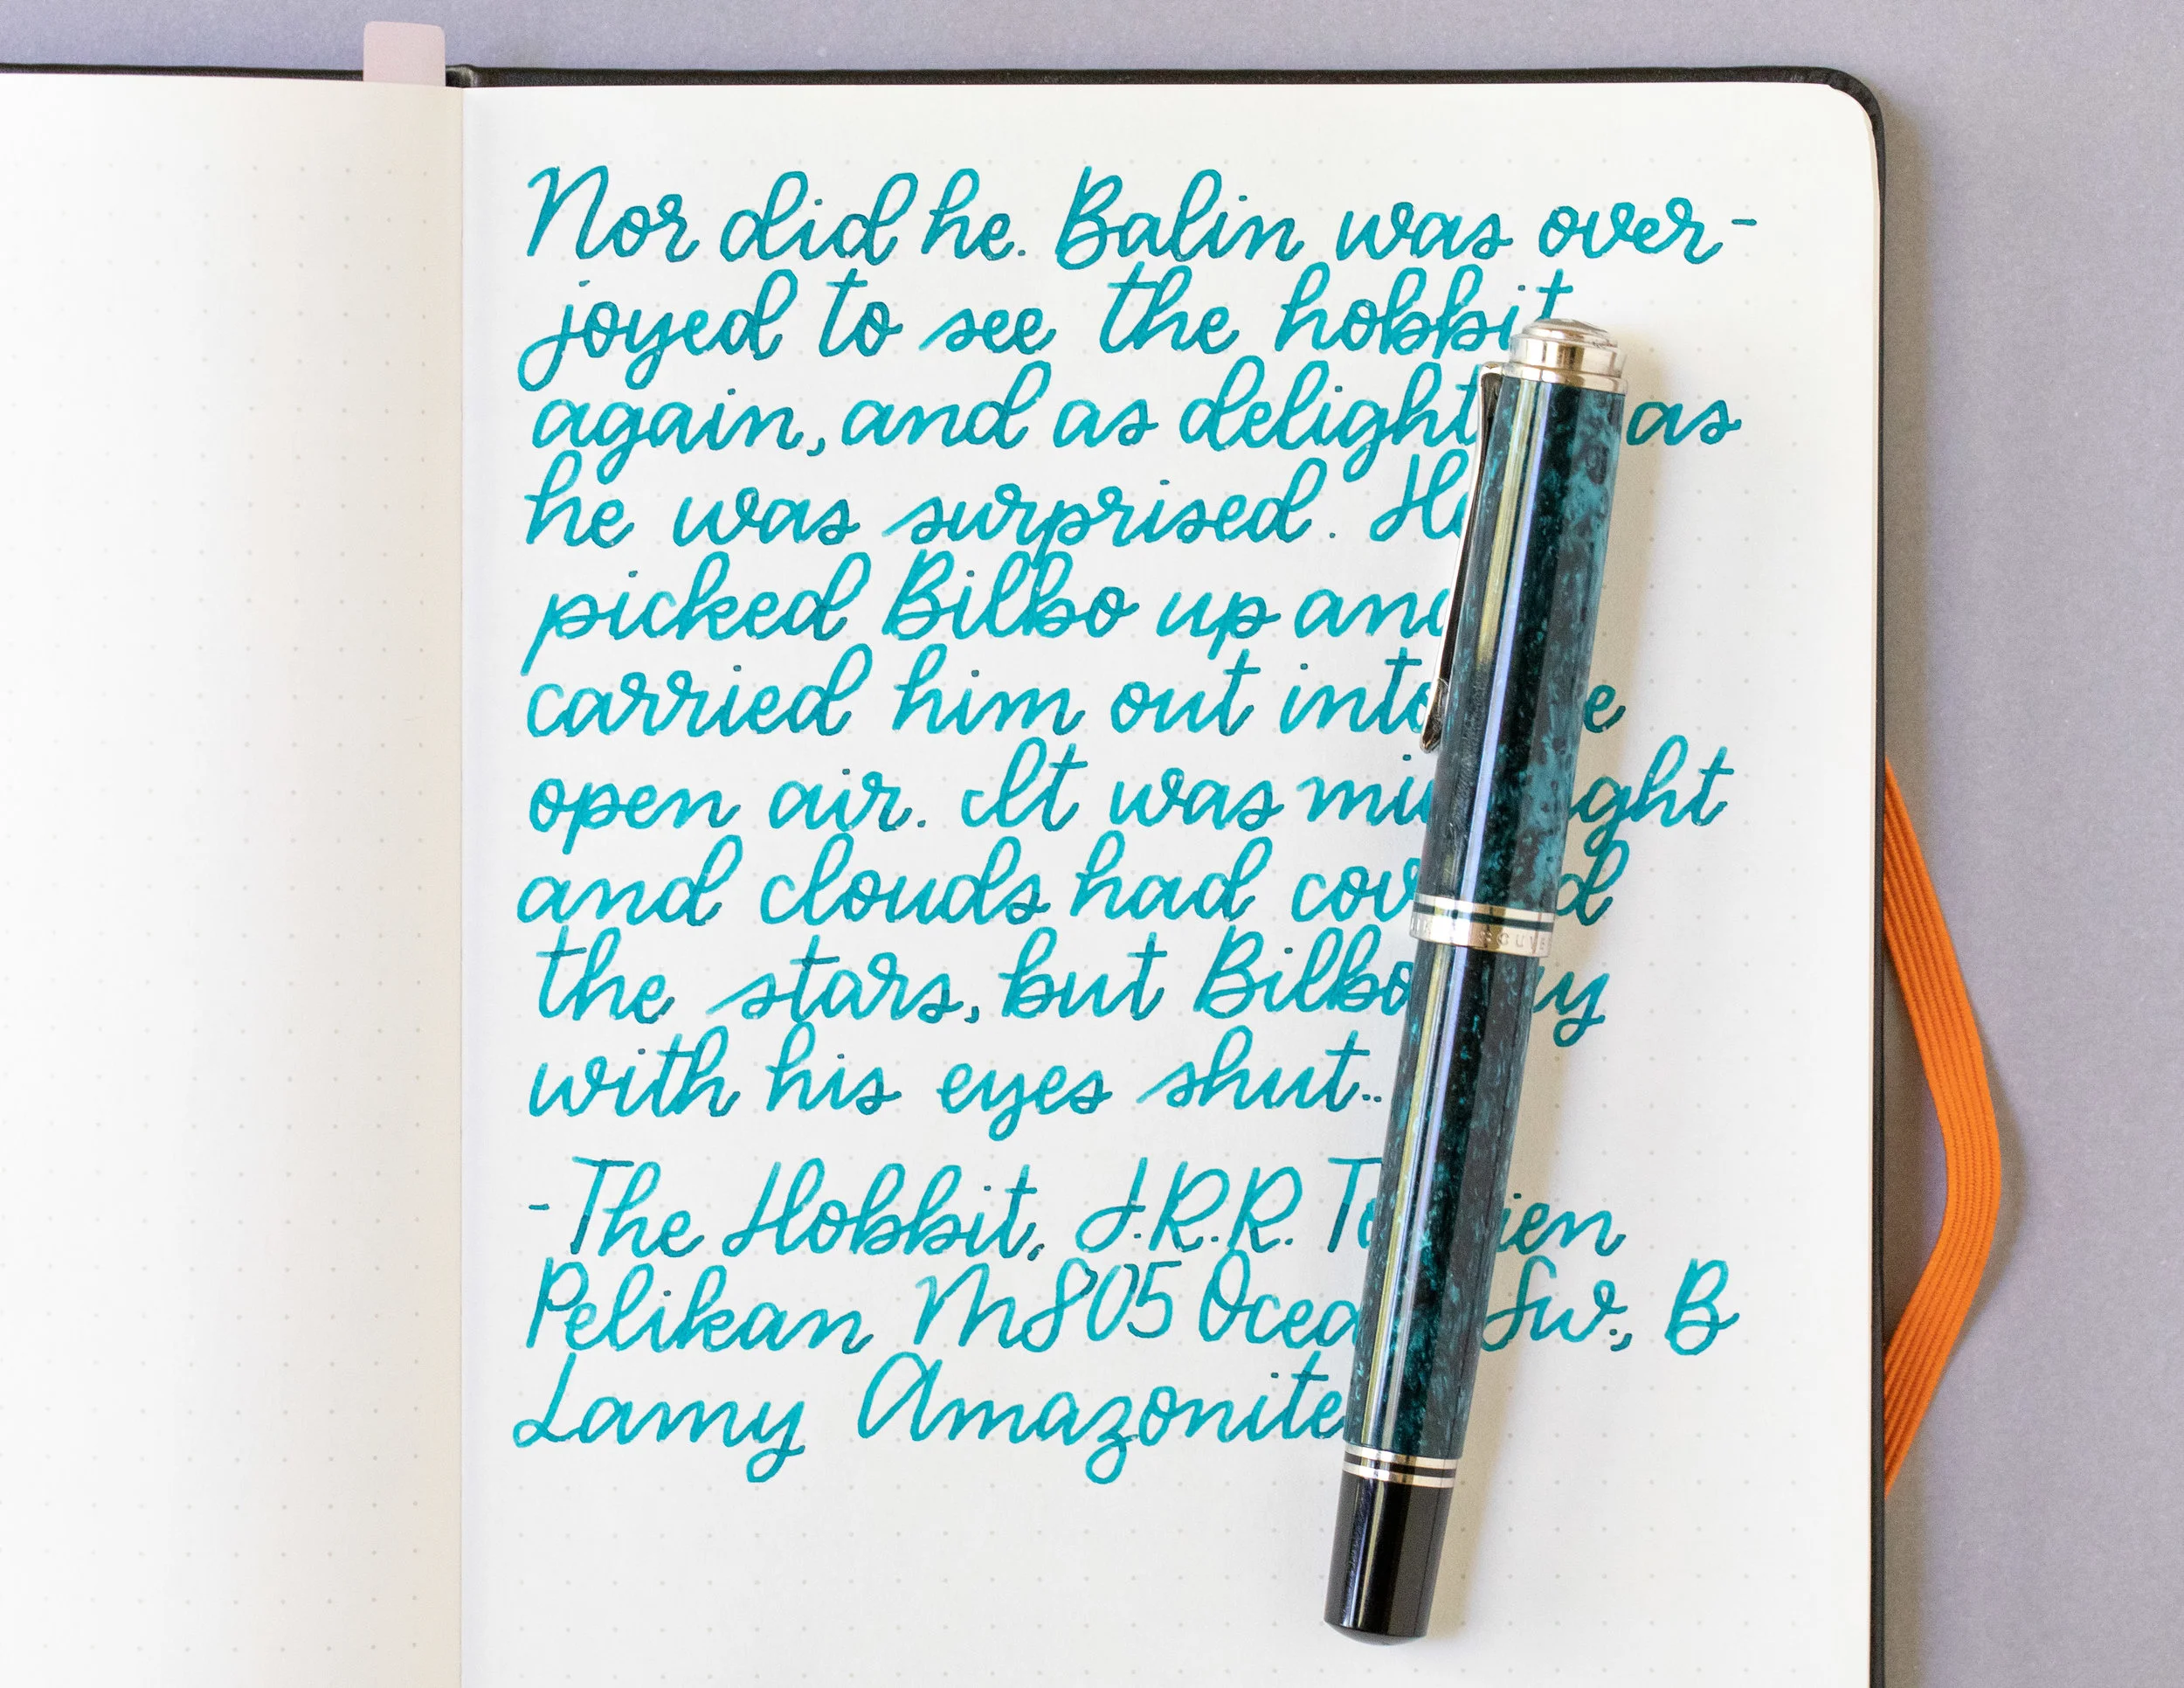 Nor did he. Balin was over-
joyed to see the hobbit
again, and as delighted as
he was surprised. He
picked Bilbo up and
carried him out into the
open air. It was midnight
and clouds had covered
the stars, but Bilbo lay
with his eyes shut..
-The Hobbit, J.R.R. Tolkien
Pelikan M805 Ocean Sw., B
Lamy Amazonite